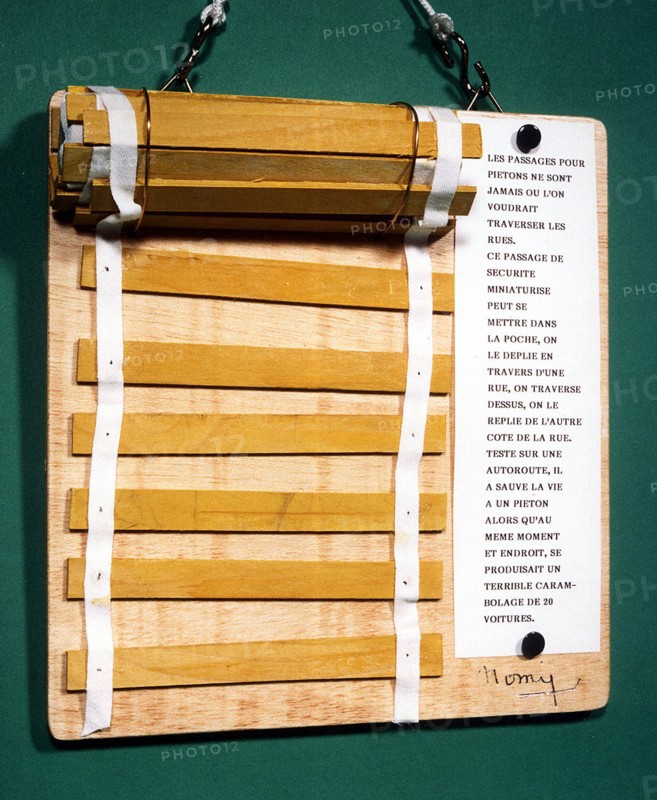 LES PASSAGES POUR
PIETONS NE SONT
JAMAIS OU L'ON
VOUDRAIT
TRAVERSER LES
RUES.
CE PASSAGE DE
SECURITE
MINIATURISE
PEUT SE
METTRE DANS
LA POCHE, ON
LE DEPLIE EN
TRAVERS D'UNE
RUE, ON TRAVERSE
DESSUS, ON LE
REPLIE DE L'AUTRE
COTE DE LA RUE.
TESTE SUR UNE
AUTOROUTE, IL
A SAUVE LA VIE
A UN PIETON
ALORS QU'AU
MEME MOMENT
ET ENDROIT, SE
PRODUISAIT UN
TERRIBLE CARAM-
BOLAGE DE 20
VOITURES.
PHOTO12